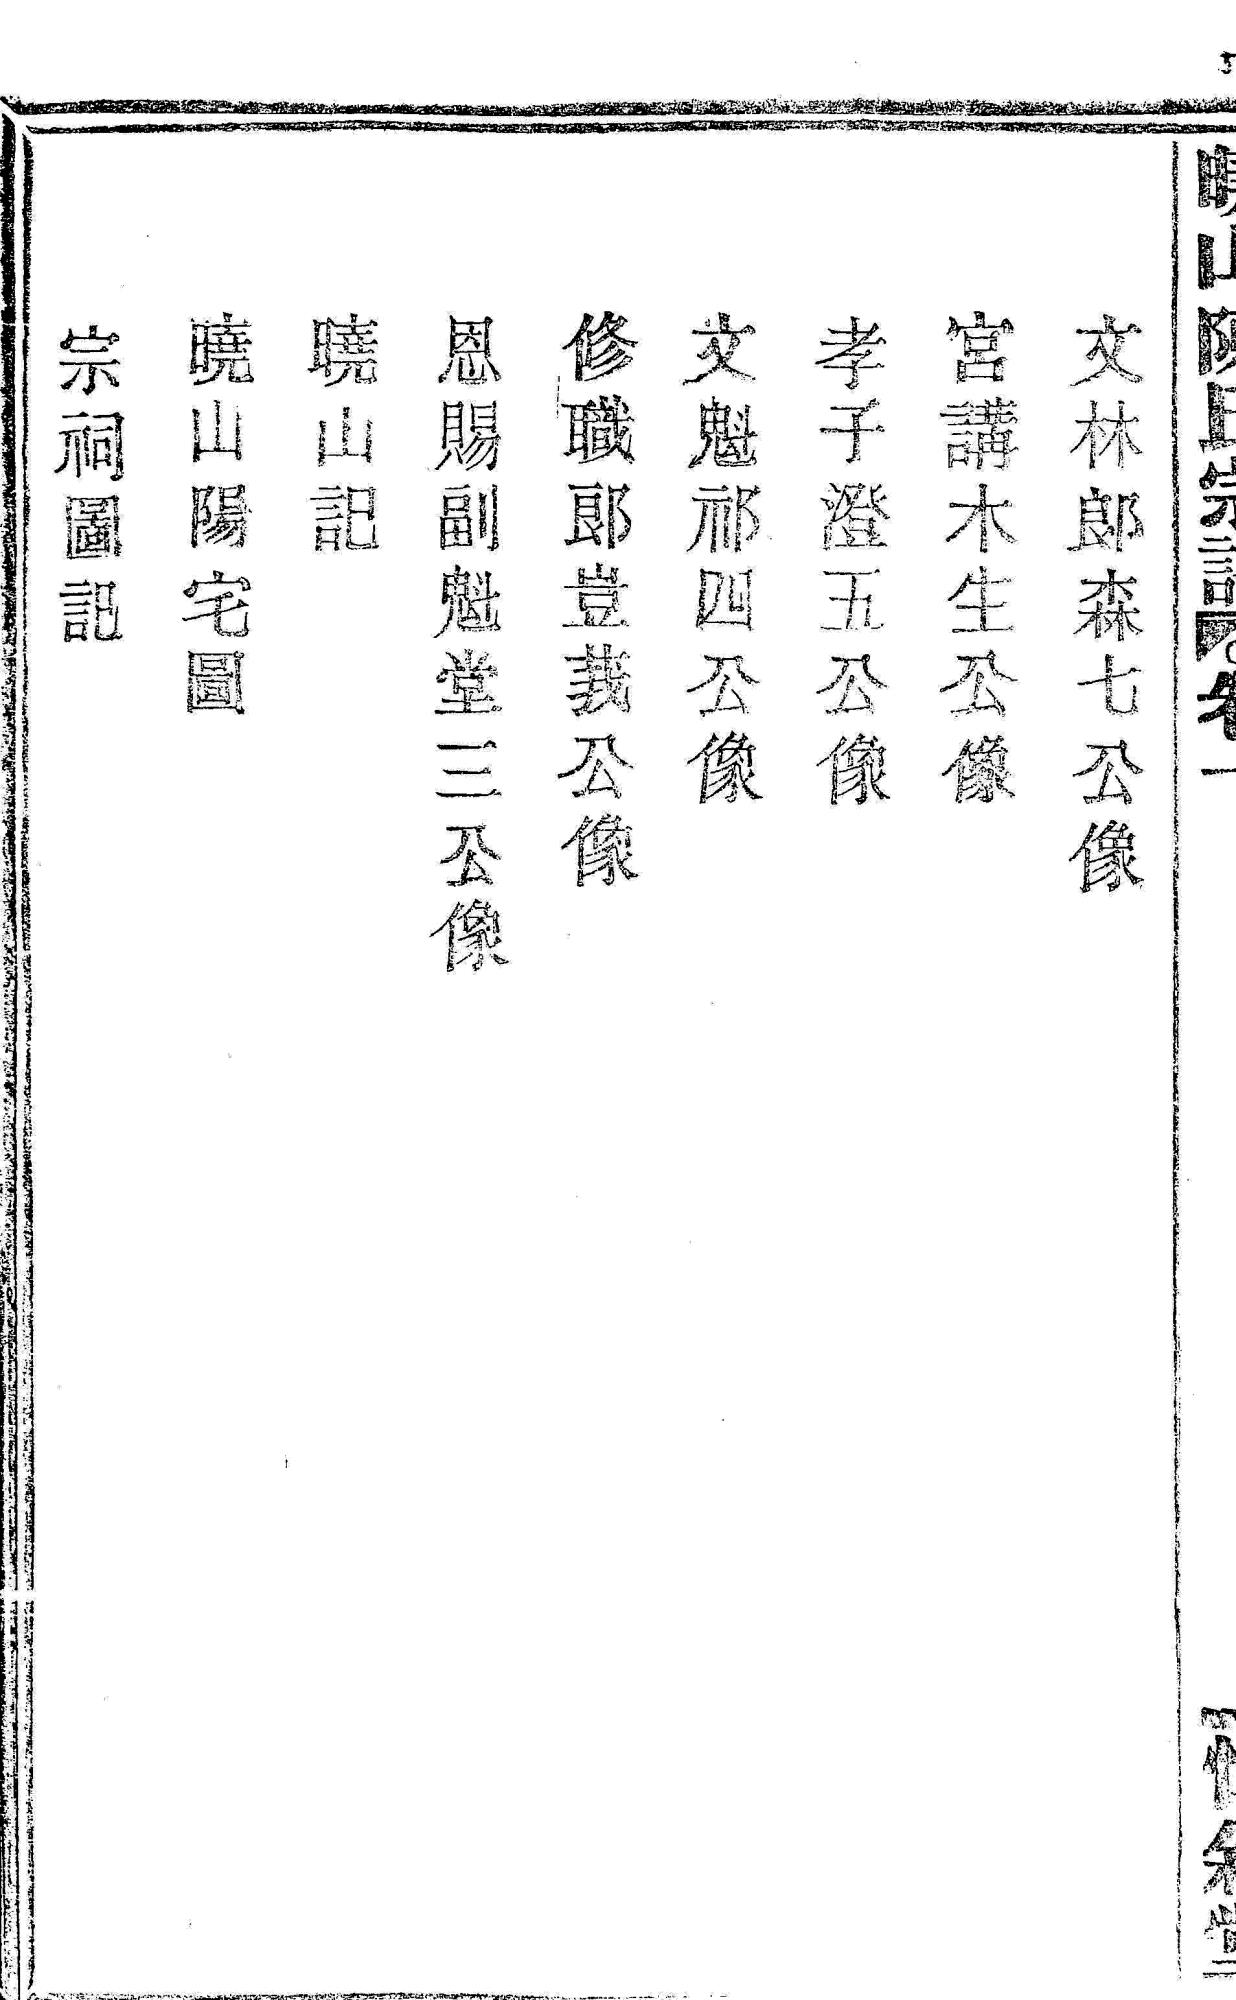 曉山陳氏宗譜 卷一
文林郎森七公像
宮講木生公像
孝子澄五公像
文魁祁四公像
修職郎豈莪公像
恩賜副魁堂三公像
曉山記
曉山陽宅圖
宗祠圖記